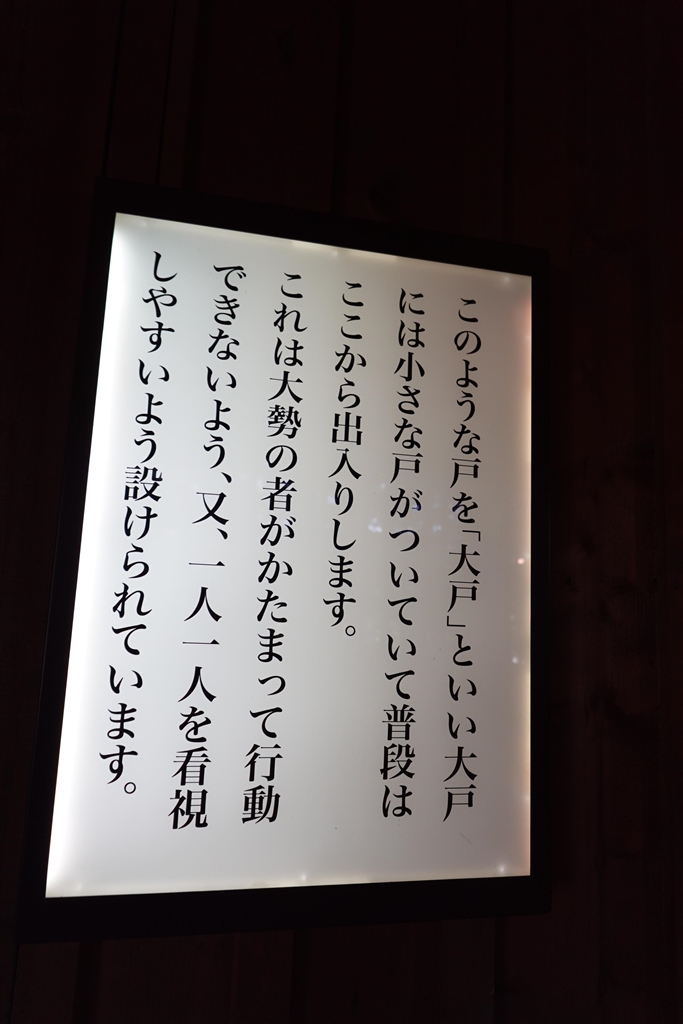 このような戸を「大戸」といい大戸
には小さな戸がついていて普段は
ここから出入りします。
これは大勢の者がかたまって行動
できないよう、又、一人一人を看視
しやすいよう設けられています。